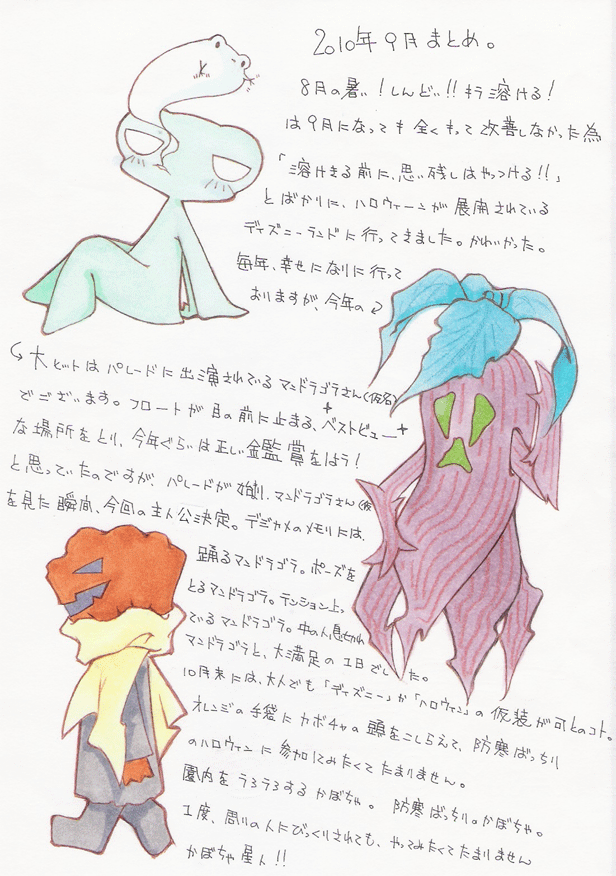 2010年9月まとめ。
8月の暑い!しんどい!!もう溶ける!
は9月になっても全くもって改善しなかった為
「溶けきる前に、思い残しはやっつける!!」
とばかりに、ハロウィーンが展開されている
ディズニーランドに行ってきました。かわいかった。
毎年、幸せになりに行って
おりますが、今年の
大ヒットはパレードに出演されているマンドラゴラさん(仮名)
でございます。フロートが目の前に止まる、ベストビュー
な場所をとり、今年ぐらいは正しい金監賞をはよう!
と思っていたのですが、パレードが始り、マンドラゴラさん(仮
を見た瞬間、今回の主人公決定。デジカメのメモリには、
踊るマンドラゴラ。ポーズを
とるマンドラゴラ。テンション上っ
ているマンドラゴラ。中の人息切れ
マンドラゴラと、大満足の1日でした。
10月末には、大人でも「ディズニー」か「ハロウィン」の仮装が可とのコト。
オレンジの手袋にカボチャの頭をこしらえて、防寒ばっちり
のハロウィンに参加してみたくてたまりません。
園内をうろうろするかぼちゃ。防寒ばっちり。かぼちゃ。
1度、周りの人にびっくりされても、やってみたくてたまりません
かぼちゃ星人!!